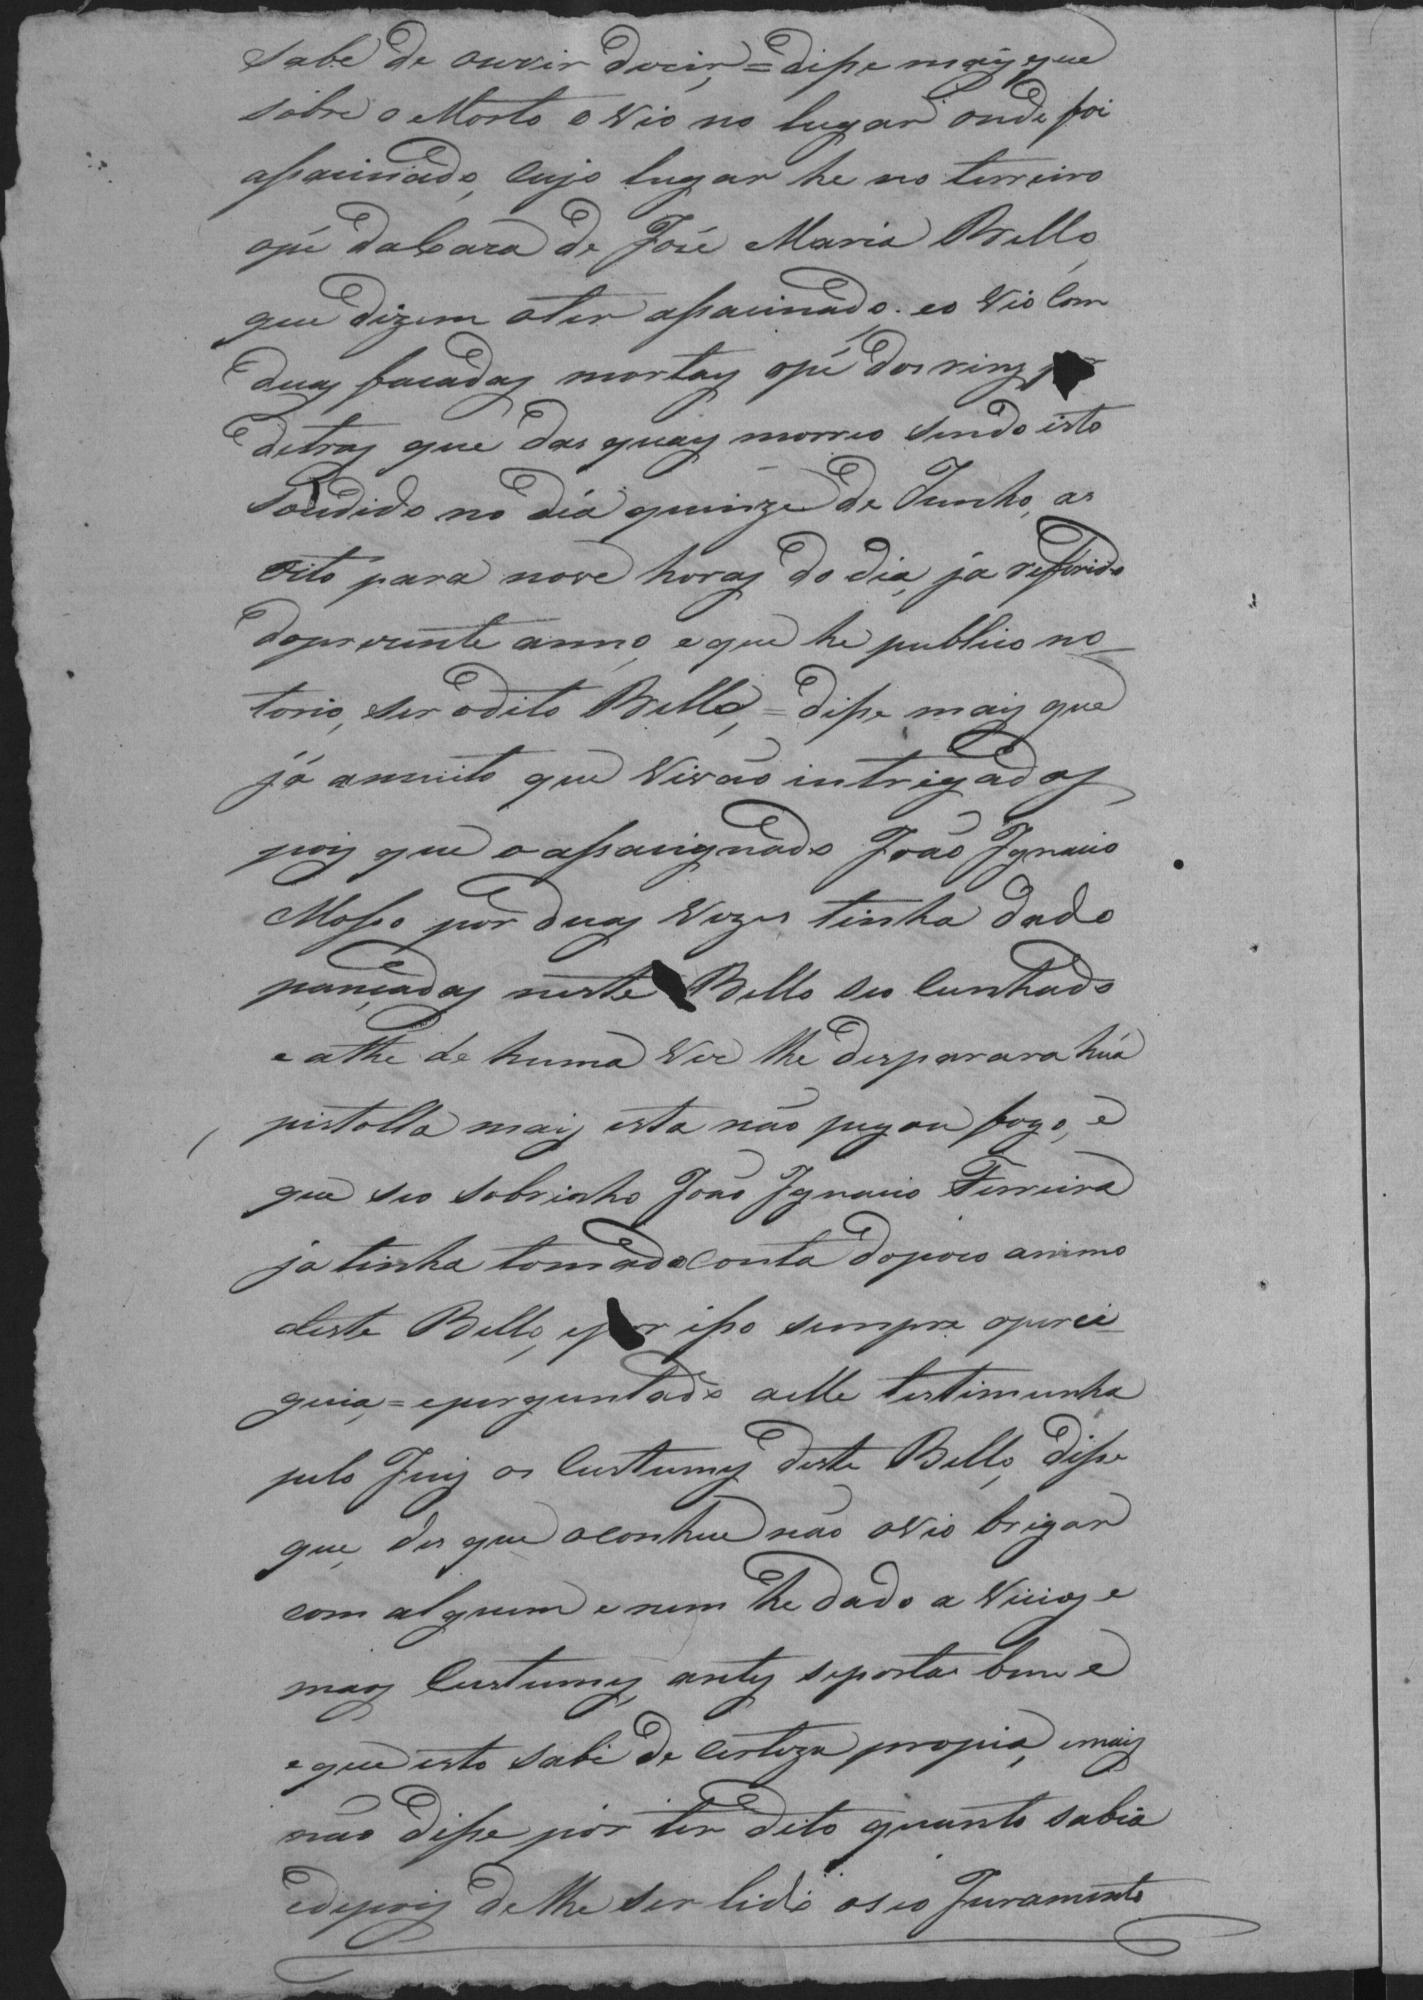 sabe de ouvir dizir, = disse mais que
sobre o Morto o vio no lugar onde foi
assacinado, cujo lugar he no terreiro
opé da Caza de José Maria Bello,
que dizem oter assacinado. eo vio Com
duas facadas mortais opé dos rins por
detras que das quais morreo sendo isto
Soudido no dia quinze de Junho, as
oito para nove horas do dia, já refirido
doprezente anno, e que he publico no_
torio, ser odito Bello, = disse mais que
já amuito que Vivão intrigados,
pois que o assacignado João Ignacio
Mosso por duas Vezes tinha dado
pancadas neste Bello seo Cunhado
e athe de huma Vez lhe disparara huá
pistolla mais esta não pegou fogo, e
que seo sobrinho João Ignacio Ferreira
ja tinha tomado conta dopoco animo
deste Bello, epor isso sempre operci_
guia, = eperguntado aelle testimunha
pelo Juiz os Custumes deste Bello, disse
que, des que oconhece não ovio brigar
com alguem e nem he dado a Vicios e
maos Custumes, antes seporta bem e
e que isto sabe de certeza propia, emais
não disse por ter dito quanto sabia
edepois de lhe ser lido oseo Juramento